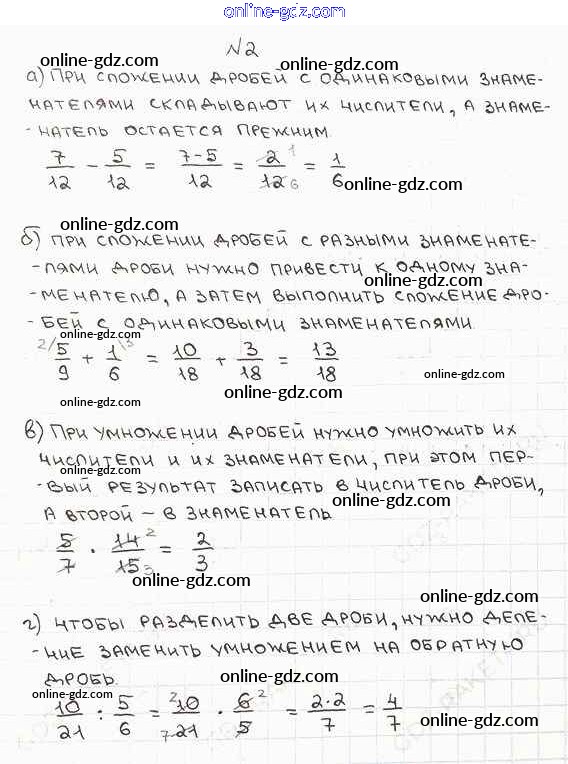 online-gdz.com
N2
online-gdz.com online-gdz.com
а) При сложении дробей с одинаковыми знаме-
нателями складывают их числители, а знаме-
-натель остается прежним.
7/12 - 5/12 = (7-5)/12 = 2 1/12 6 = 1/6
online-gdz.com
online-gdz.com
б) При сложении дробей с разными знаменате-
-лями дроби нужно привести к одному зна-
online-gdz.com
-менателю, а затем выполнить сложение дро-
-бей с одинаковыми знаменателями.
online-gdz.com
2/ 5/9 + 1/6 \3 = 10/18 + 3/18 = 13/18
online-gdz.com
online-gdz.com
online-gdz.com
online-gdz.com
в) При умножении дробей нужно умножить их
числители и их знаменатели, при этом пер-
online-gdz.com
-вый результат записать в числитель дроби,
online-gdz.com
а второй - в знаменатель.
5/7 · 14 2/15 3 = 2/3
online-gdz.com
online-gdz.com
online-gdz.com
г) Чтобы разделить две дроби, нужно деле-
-ние заменить умножением на обратную
дробь.
online-gdz.com online-gdz.com
10/21 : 5/6 = 2 10/7 21 · 6 2/5 = 2·2/7 = 4/7
online-gdz.com